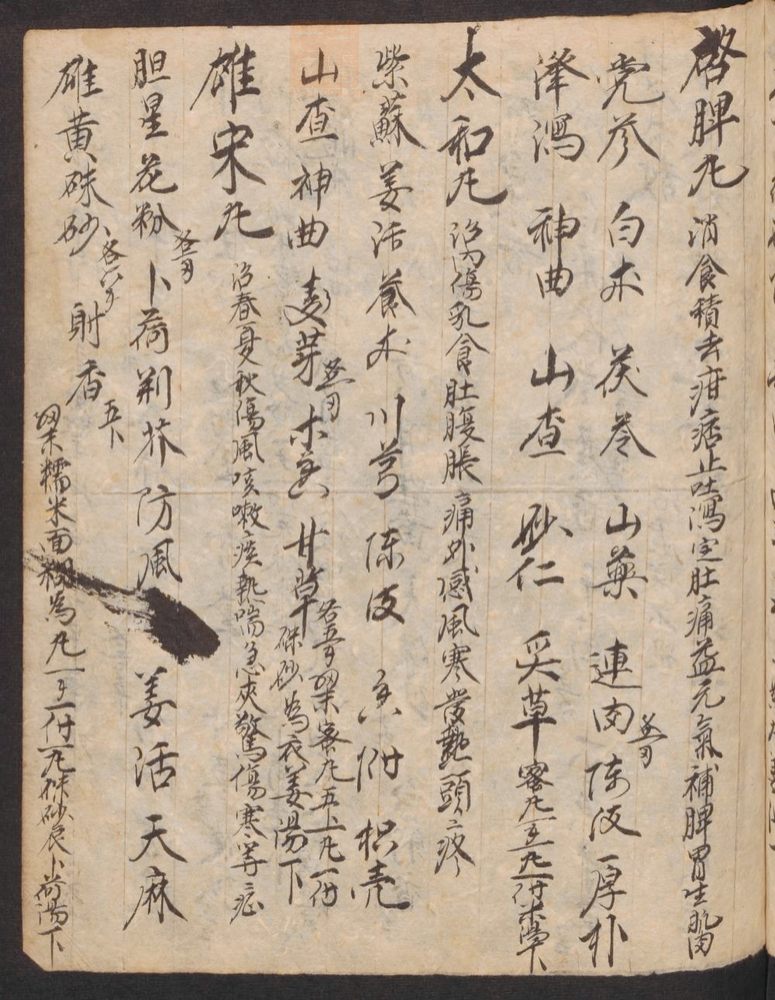 啓脾丸 消食積去疳痞止吐瀉定肚痛益元氣補脾胃生肌肉
党參 白朮 茯苓 山藥 連肉 陳皮 厚朴
澤瀉 神曲 山查 砂仁 炙草 蜜丸
太和丸 治内傷乳食肚腹脹痛外感風寒發熱頭疼
紫蘇 姜活 蒼朮 川芎 陳皮 香附 枳壳
山查 神曲 麦芽 木香 甘草 蜜丸 硃砂為衣姜湯下
雄朱丸 治春夏秋傷風咳嗽痰熱喘急夾驚傷寒等症
胆星 花粉 卜荷 荆芥 防風 姜活 天麻
雄黄 硃砂 射香 糯米面糊為丸 硃砂衣卜荷湯下